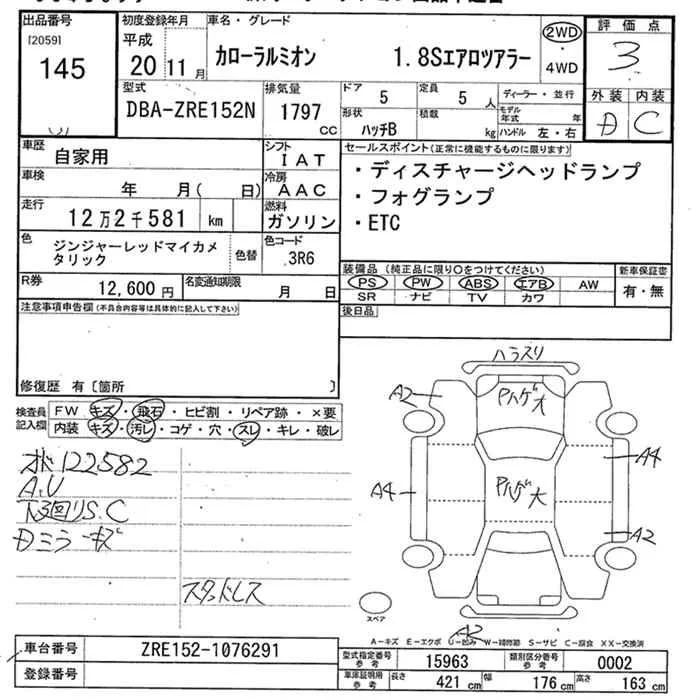 出品番号 初度登録年月 車名・グレード 評価点
[2059] 平成 2WD
145 20 11月 カローラルミオン 1.8Sエアロツアラー ・4WD 3
型式 排気量 ドア 5 定員 5人 ディーラー・並行 外装 内装
DBA-ZRE152N 1797 cc 形状 ハッチB 積載 kg モデル年式 年 D C
ハンドル 左・右
車歴 自家用 シフト IAT セールスポイント(正常に機能するものに限ります)
車検 年 月( 日) 冷房 AAC ・ディスチャージヘッドランプ
走行 12万2千581 km 燃料 ガソリン ・フォグランプ
・ETC
色 ジンジャーレッドマイカメタリック 色替 色コード 3R6
R券 12,600円 名変通知期限 月 日 装備品(純正品に限り○をつけてください) 新車保証書
PS PW ABS エアB AW 有・無
SR ナビ TV カワ
注意事項申告欄(不具合内容等は具体的に記入して下さい) 後日品
修復歴 有〔箇所 〕
検査員記入欄 FW キズ・飛石・ヒビ割・リペア跡・×要
内装 キズ・汚レ・コゲ・穴・スレ・キレ・破レ
ハラスリ
A2 Pハゲ大
122582
A.U
下回りS.C
Dミラーキズ
A4 Pハゲ大 A4
A2
スタッドレス
スペア
A2
A-キズ E-エクボ U-凹み W-補修跡 S-サビ C-腐食 XX-交換済
車台番号 ZRE152-1076291 型式指定番号 参考 15963 類別区分番号 参考 0002
登録番号 車庫証明用 参考 長さ 421 cm 幅 176 cm 高さ 163 cm